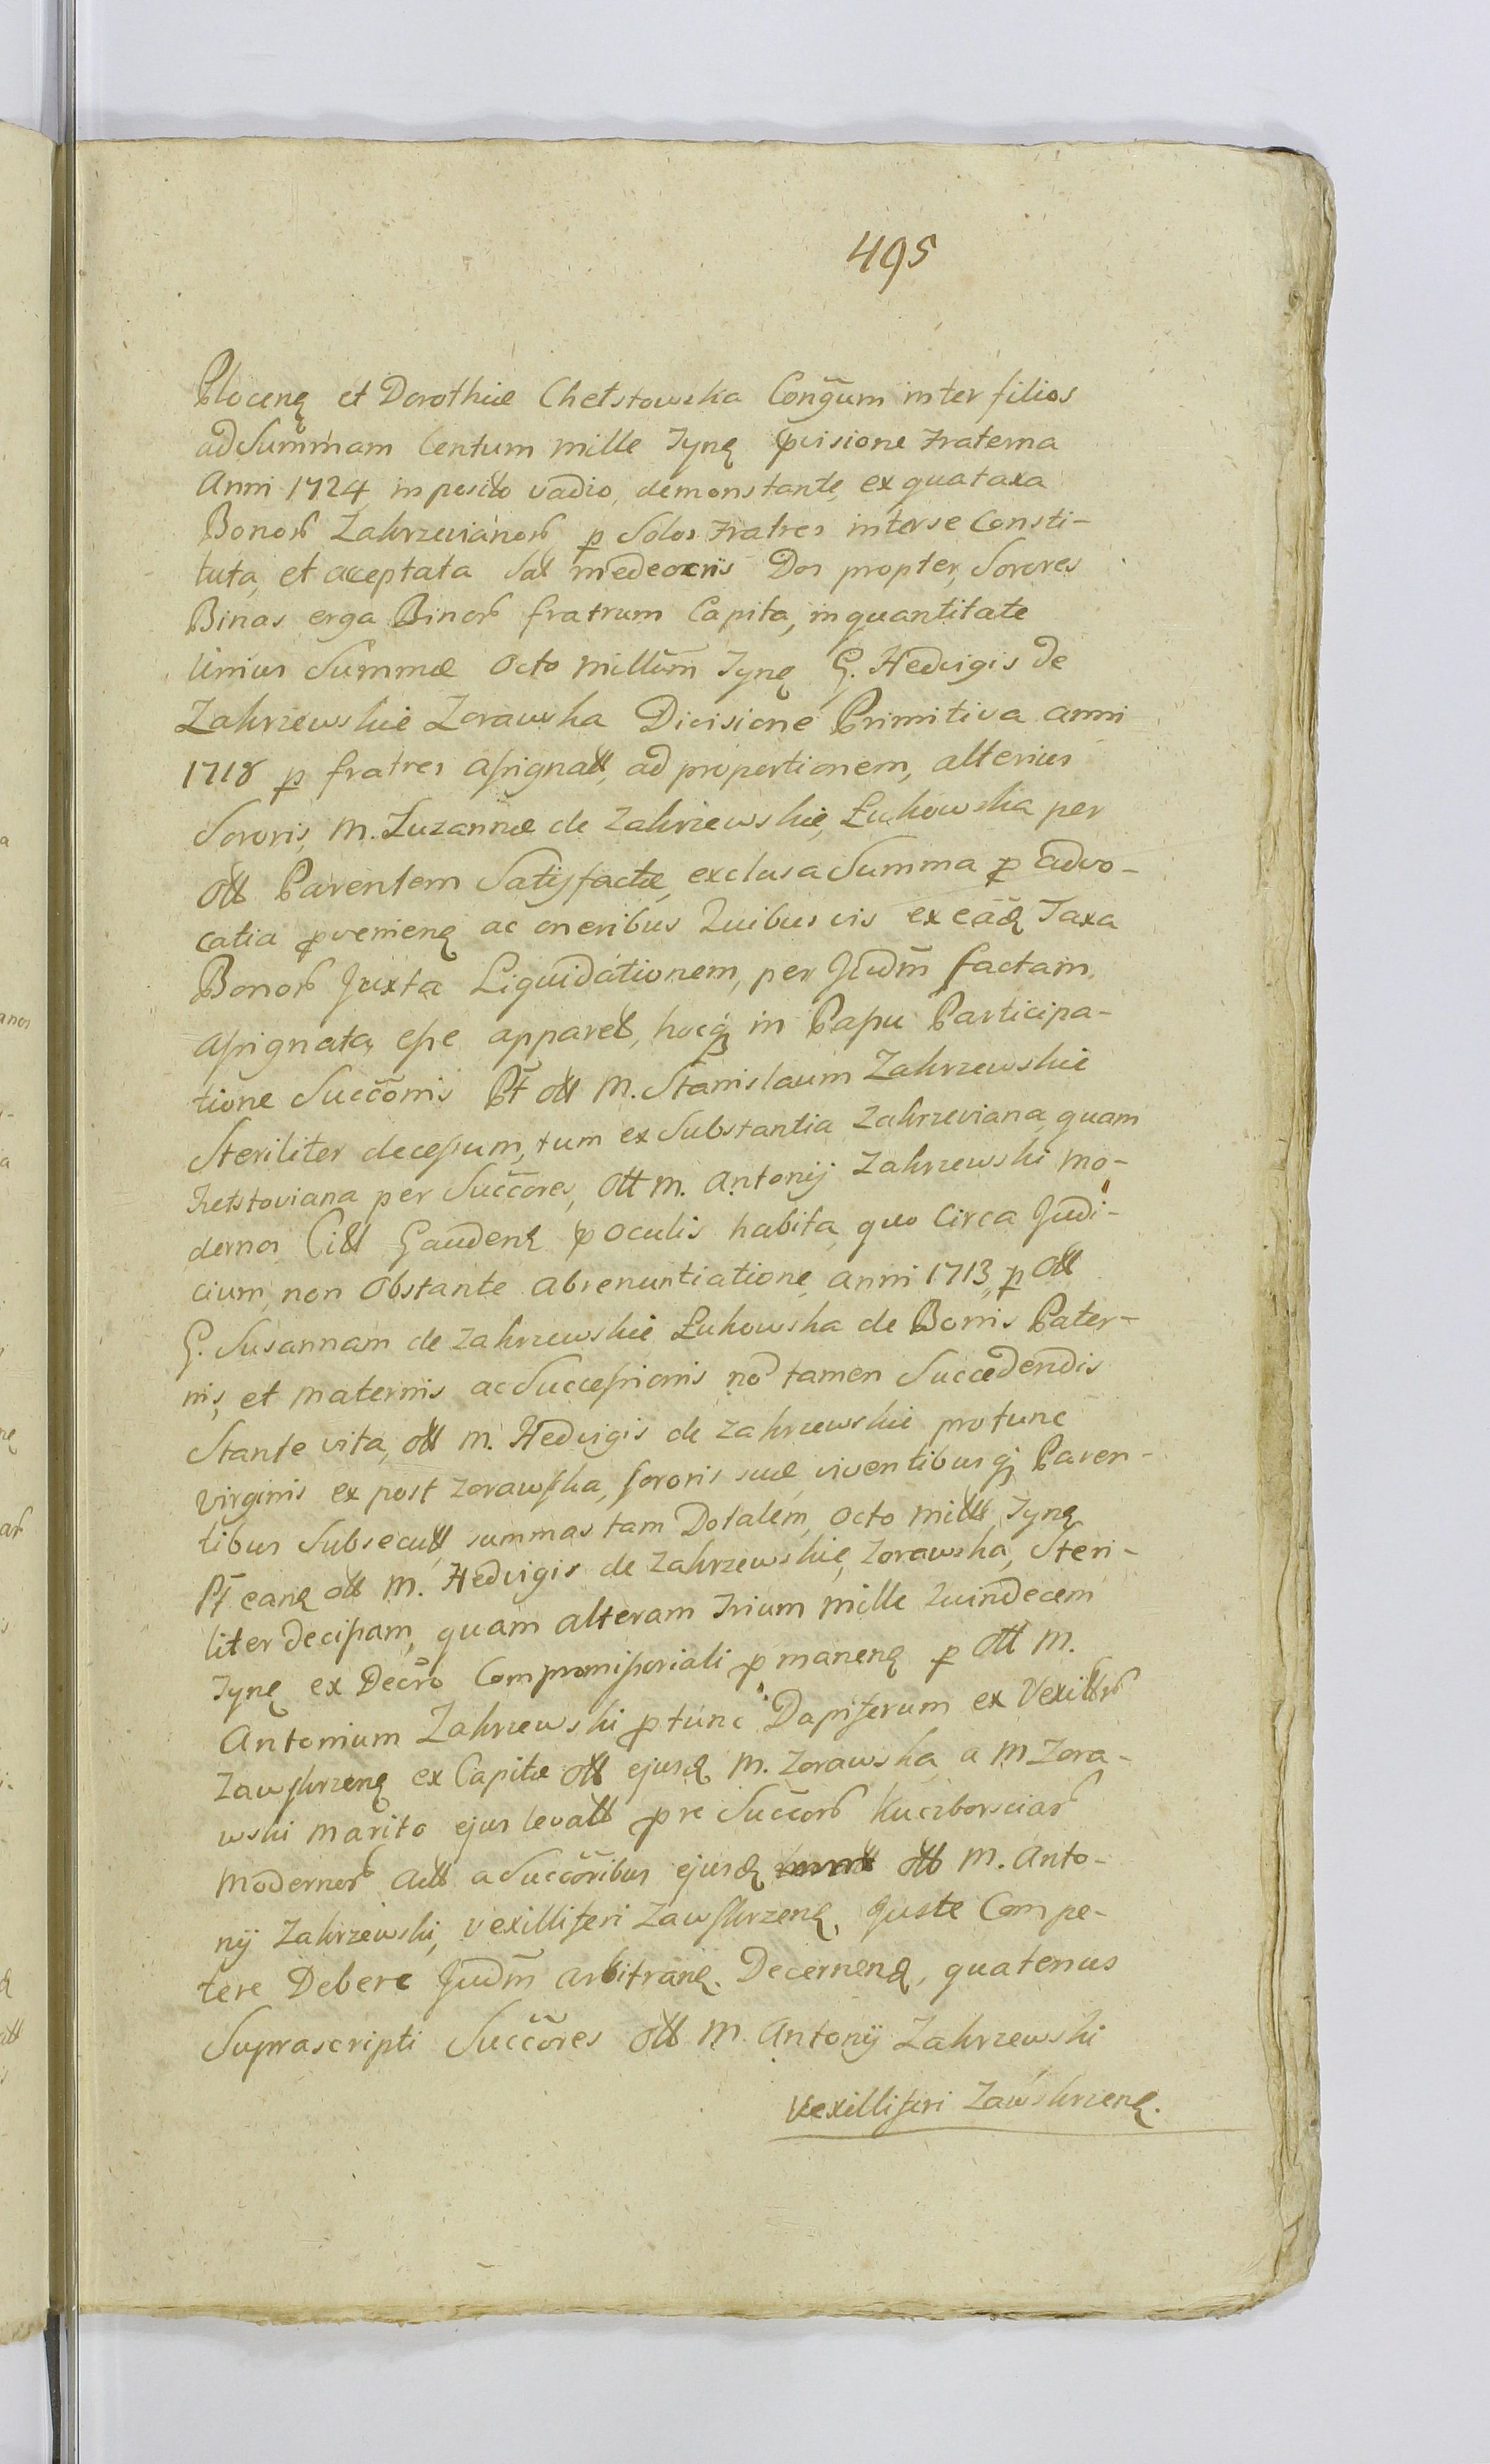 495
Plocenę et Dorothæ Chełstowska Congūm inter filios
ad Summam Centum mille Tynę ꝓvisione Fraterna
Anni 1724 in posito vadio, demonstante, ex qua taxa
Bonorꝭ Zakrzevianorꝭ ꝑ Solos Fratres inter se Consti-
tuta, et acceptata Sat medeocris Dos propter Sorores
Binas erga Binorꝭ fratrum Capita, in quantitate
Unius Summæ Octo milliūm Tynę G. Hedvigis de
Zakrzewskie Zorawska Divisione Primitiva anni
1718 ꝑ fratres assignatt, ad proportionem, alterius
Sororis, M. Zuzannæ de Zakrzewskie, Łukowska per
Ott Parentem Satisfactæ, exclusa Summa ꝑ advo-
catia ꝓvenienę ac oneribus Quibus vis ex eādę Taxa
Bonorꝭ Juxta Liquidationem, per Judm̄ factam,
assignata, esse apparet, hocqꝫ in Passu Participa-
tione Succōnis Pt̄ ott M. Stanislaum Zakrzewskie
Steriliter decessum, tum ex Substantia Zakrzeviana, quam
Chełstoviana per Succ̄ores, Ott M. Antonij Zakrzewski mo-
dernos Citt Gaudenę ꝓ oculis habita, quo Circa Judi-
cium, non Obstante abrenuntiatione, anni 1713, ꝑ Ott
G. Susannam de Zakrzewskie Łukowska de Bonis Pater-
nis, et maternis ac Successionis nō tamen Succedendis
Stante vita, ott M. Hedvigis de Zakrzewskie pro tunc
virginis ex post Zorawska, sororis suæ, viventibusqꝫ Paren-
tibus Subsecutt summas tam Dotalem, Octo mille Tynę
Pt̄ eanę ott M. Hedvigis de Zakrzewskie, Zorawska, Steri-
liter decissam, quam alteram Trium mille Quindecem
Tynę ex Decr̄o Compromissoriali ꝑmanenę ꝑ Ott M.
Antonium Zakrzewski ꝓ tunc Dapiferum ex Vexillrꝭ
Zawskrzenę ex Capite Ott ejusdę M. Zorawska, a M Zora-
wski marito ejus levatt ꝓ re Succorꝭ Kuczborsciarꝭ
Modernorꝭ Att a Succōribus ejusdę ott M. Anto-
nij Zakrzewski, vexilliferi Zawskrzenę, Juste Compe-
tere Debere Judm̄ arbitranę. Decernendę, quatenus
Suprascripti Succōres Ott M. Antonij Zakrzewski
Vexilliferi Zawskrzenę.